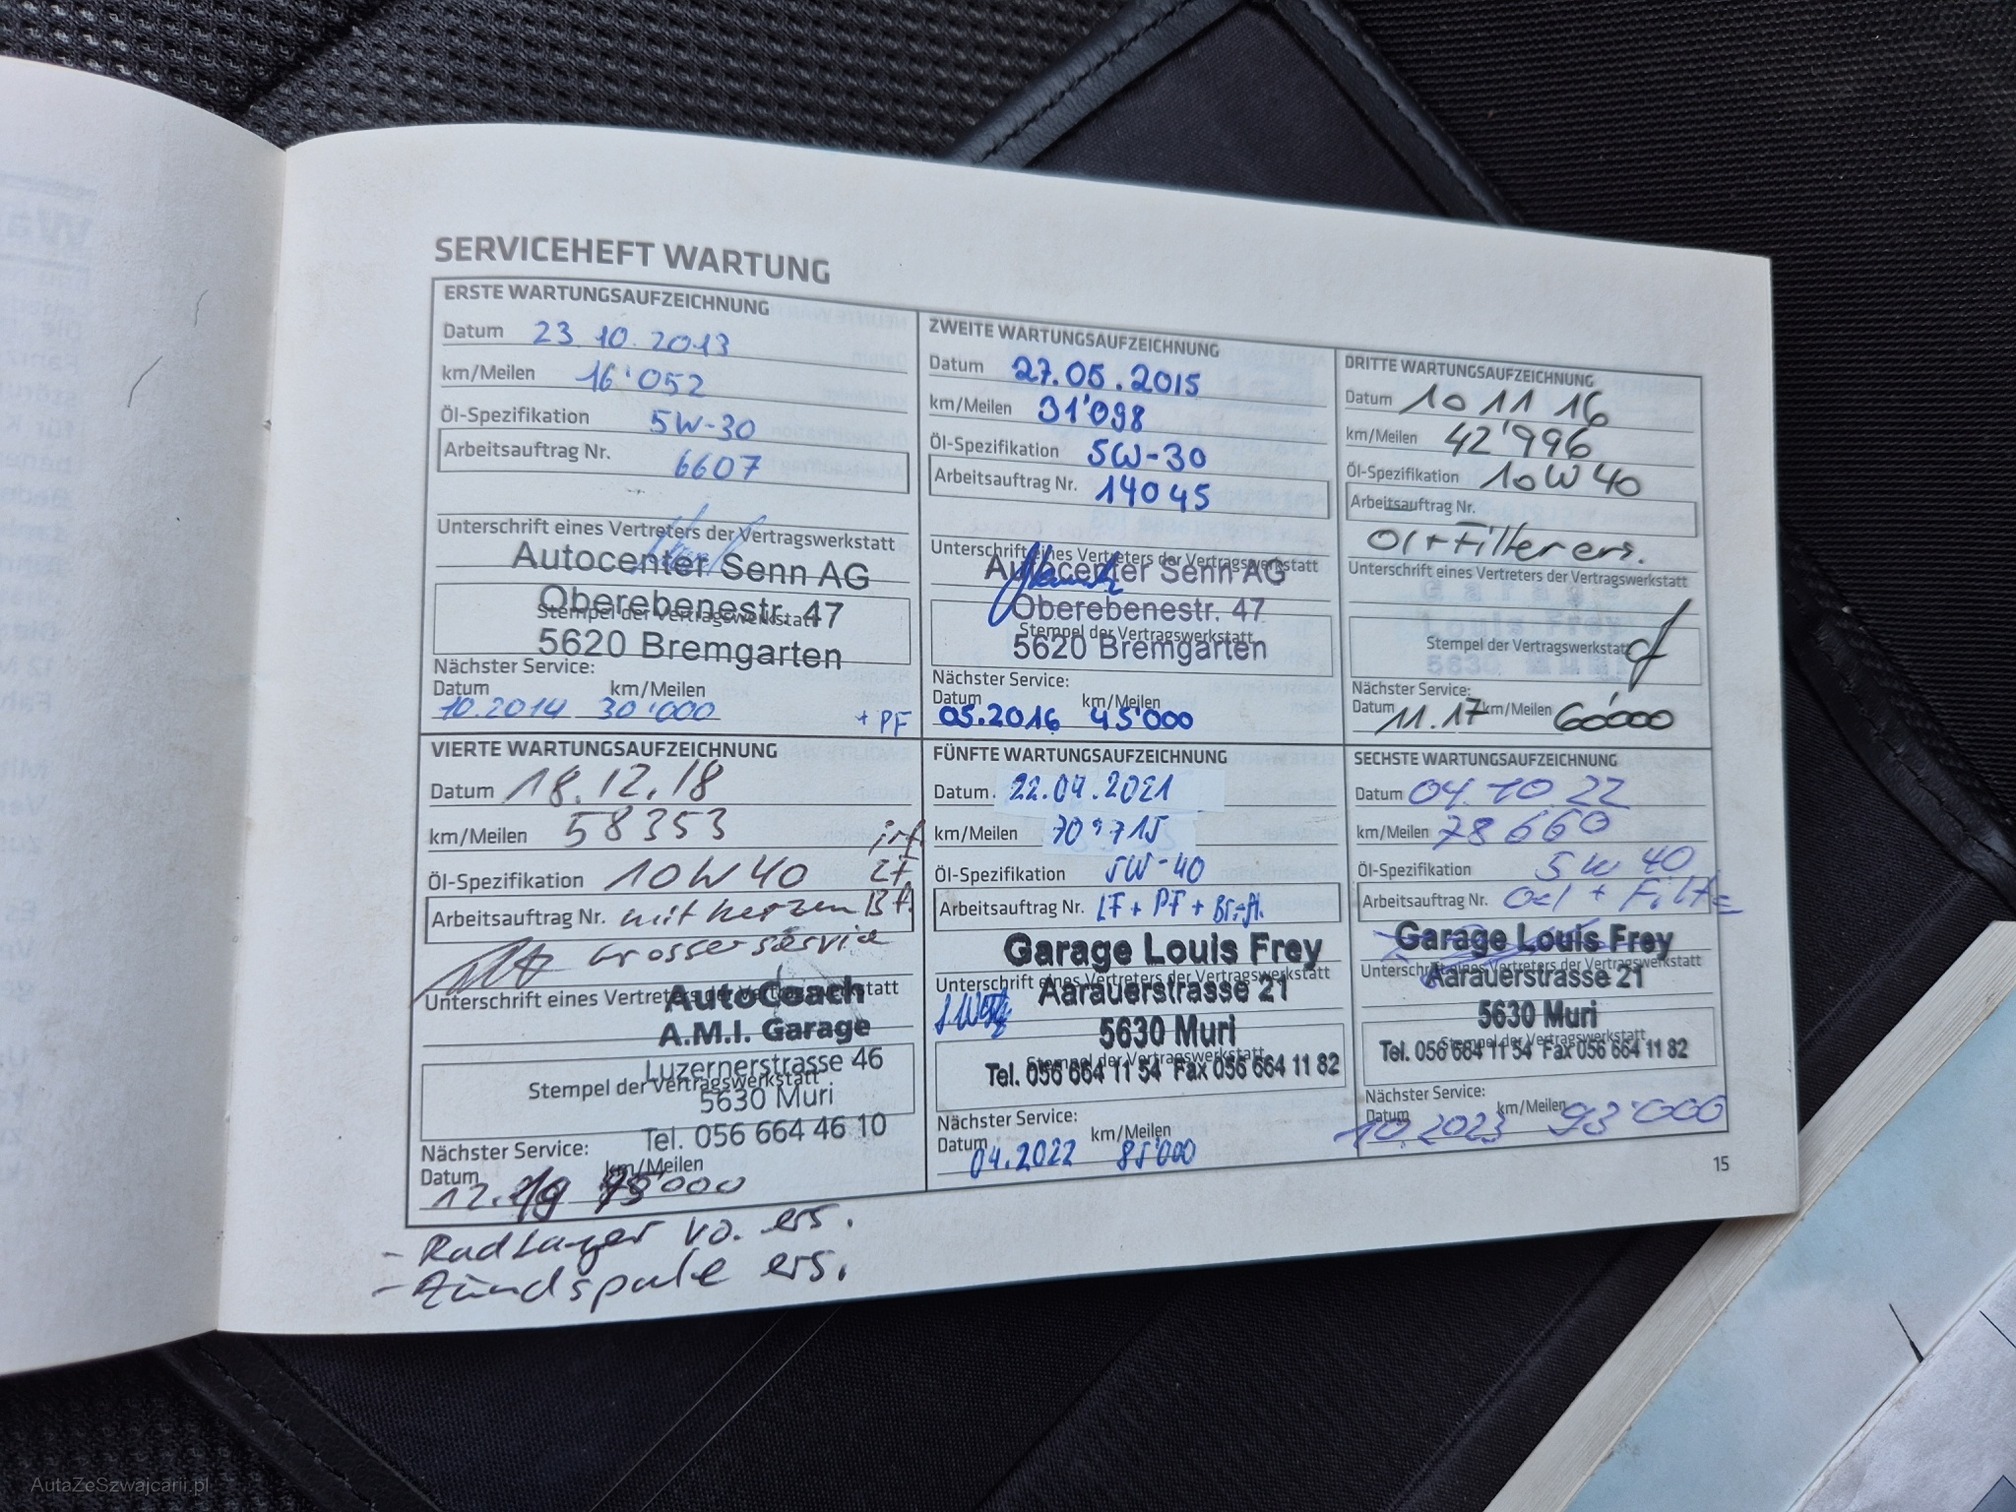 SERVICEHEFT WARTUNG
ERSTE WARTUNGSAUFZEICHNUNG
Datum 23 10. 2013
km/Meilen 16'052
Öl-Spezifikation 5W-30
Arbeitsauftrag Nr. 6607
Unterschrift eines Vertreters der Vertragswerkstatt
Autocenter Senn AG
Oberebenestr. 47
Stempel der Vertragswerkstatt
5620 Bremgarten
Nächster Service:
Datum km/Meilen
10.2014 30'000
+ PF
ZWEITE WARTUNGSAUFZEICHNUNG
Datum 27.05.2015
km/Meilen 31'098
Öl-Spezifikation 5W-30
Arbeitsauftrag Nr. 14045
Unterschrift eines Vertreters der Vertragswerkstatt
Autocenter Senn AG
Oberebenestr. 47
Stempel der Vertragswerkstatt
5620 Bremgarten
Nächster Service:
Datum km/Meilen
05.2016 45'000
DRITTE WARTUNGSAUFZEICHNUNG
Datum 10 11 16
km/Meilen 42'996
Öl-Spezifikation 10W40
Arbeitsauftrag Nr.
Öl+Filter ers.
Unterschrift eines Vertreters der Vertragswerkstatt
Garage
Louis Frey
Stempel der Vertragswerkstatt
5630 Muri
Nächster Service:
Datum 11.17 km/Meilen 60'000
VIERTE WARTUNGSAUFZEICHNUNG
Datum 18.12.18
km/Meilen 58353
Öl-Spezifikation 10W40
Arbeitsauftrag Nr. mit kerzen
Grosser service
Unterschrift eines Vertreters der Vertragswerkstatt
AutoCoach
A.M.I. Garage
Luzernerstrasse 46
Stempel der Vertragswerkstatt
5630 Muri
Tel. 056 664 46 10
Nächster Service:
Datum km/Meilen
- Radlager vo. ers.
- Zündspule ers.
FÜNFTE WARTUNGSAUFZEICHNUNG
Datum. 22.04.2021
km/Meilen 70'715
Öl-Spezifikation 5W-40
Arbeitsauftrag Nr. LF + PF + Br.-fl.
Garage Louis Frey
Unterschrift eines Vertreters der Vertragswerkstatt
Aarauerstrasse 21
5630 Muri
Stempel der Vertragswerkstatt
Tel. 056 664 11 54 Fax 056 664 11 82
Nächster Service:
Datum km/Meilen
04.2022 85'000
SECHSTE WARTUNGSAUFZEICHNUNG
Datum 04 10 22
km/Meilen 78 660
Öl-Spezifikation 5W 40
Arbeitsauftrag Nr. Oel + Filter
Garage Louis Frey
Unterschrift eines Vertreters der Vertragswerkstatt
Aarauerstrasse 21
5630 Muri
Stempel der Vertragswerkstatt
Tel. 056 664 11 54 Fax 056 664 11 82
Nächster Service:
Datum km/Meilen
10.2023 93'000
15
AutaZeSzwajcarii.pl